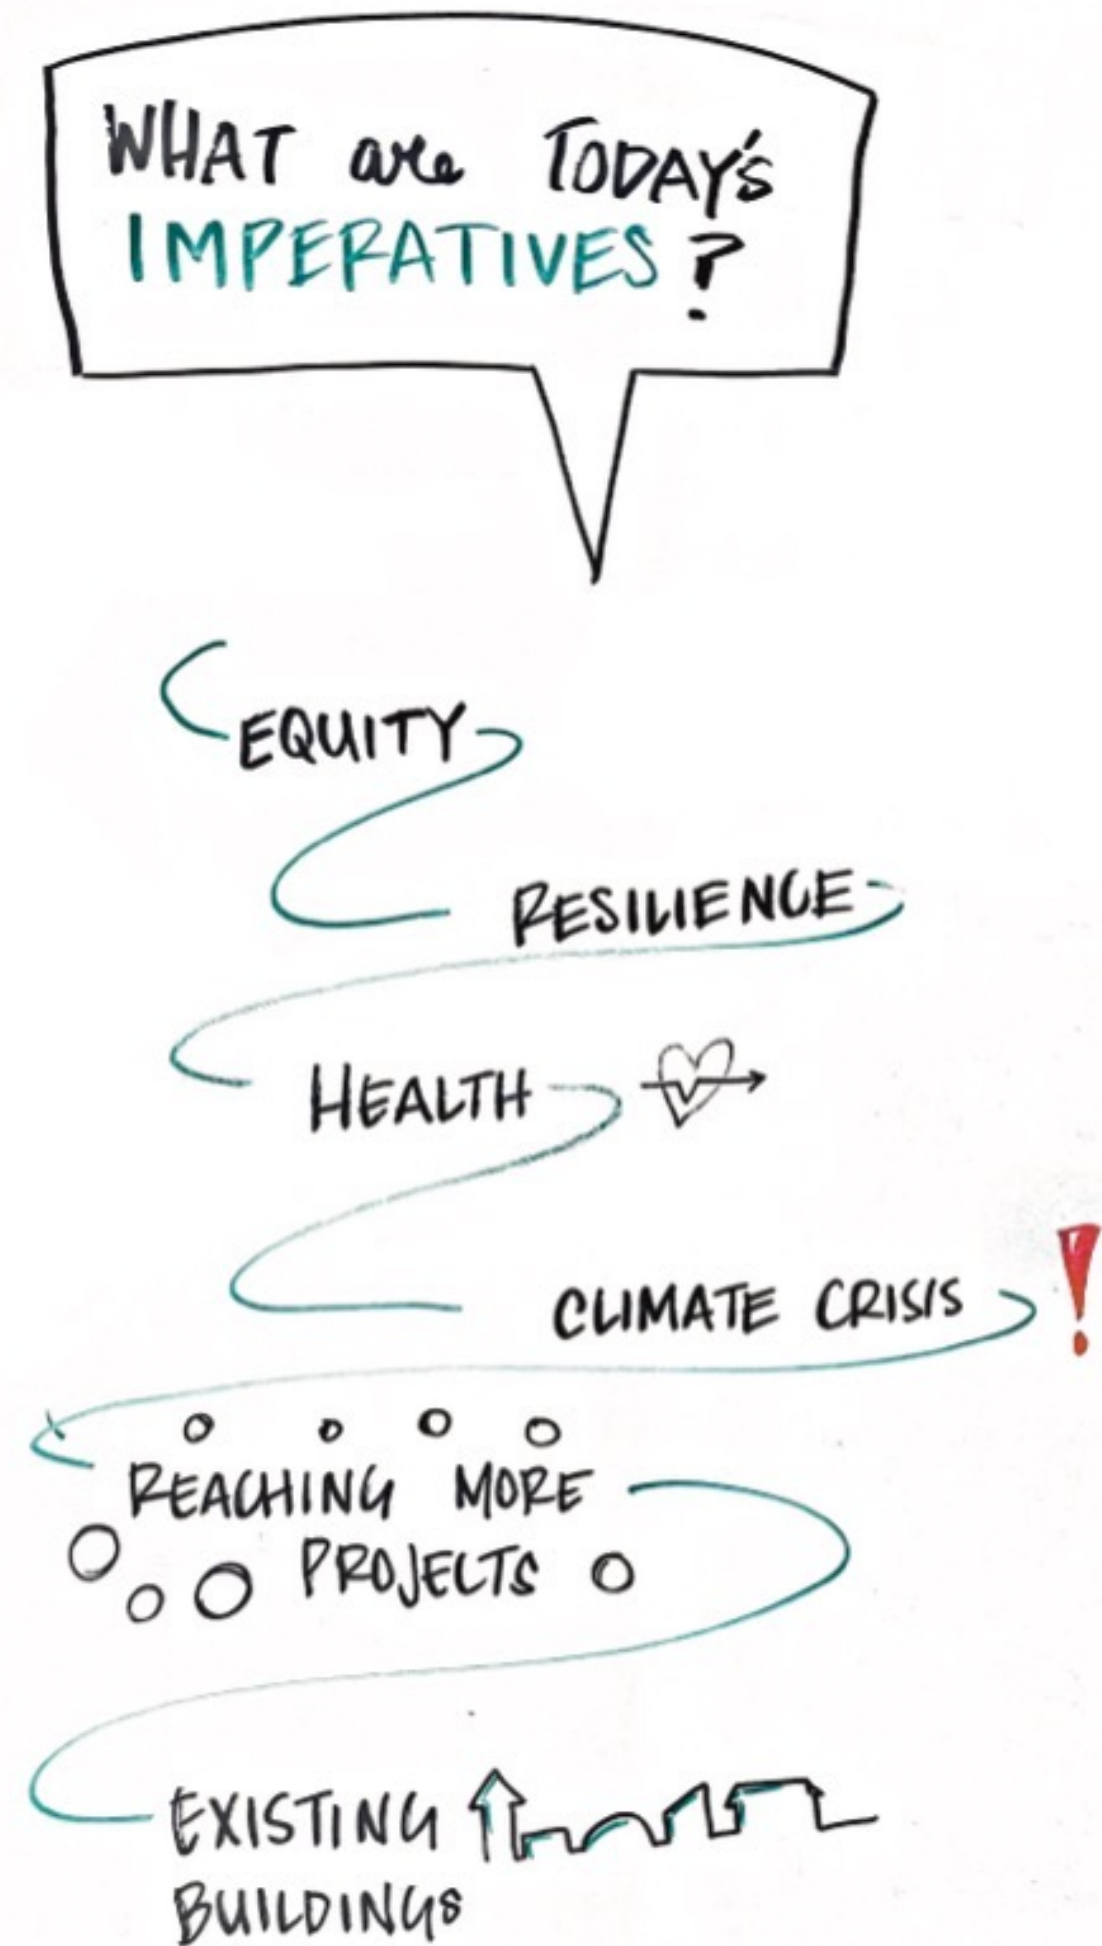 WHAT are TODAY'S
IMPERATIVES?
EQUITY
RESILIENCE
HEALTH
CLIMATE CRISIS !
REACHING MORE
PROJECTS
EXISTING
BUILDINGS